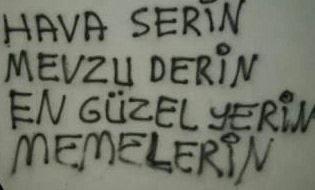 HAVA SERİN
MEVZU DERİN
EN GÜZEL YERİN
MEMELERİN